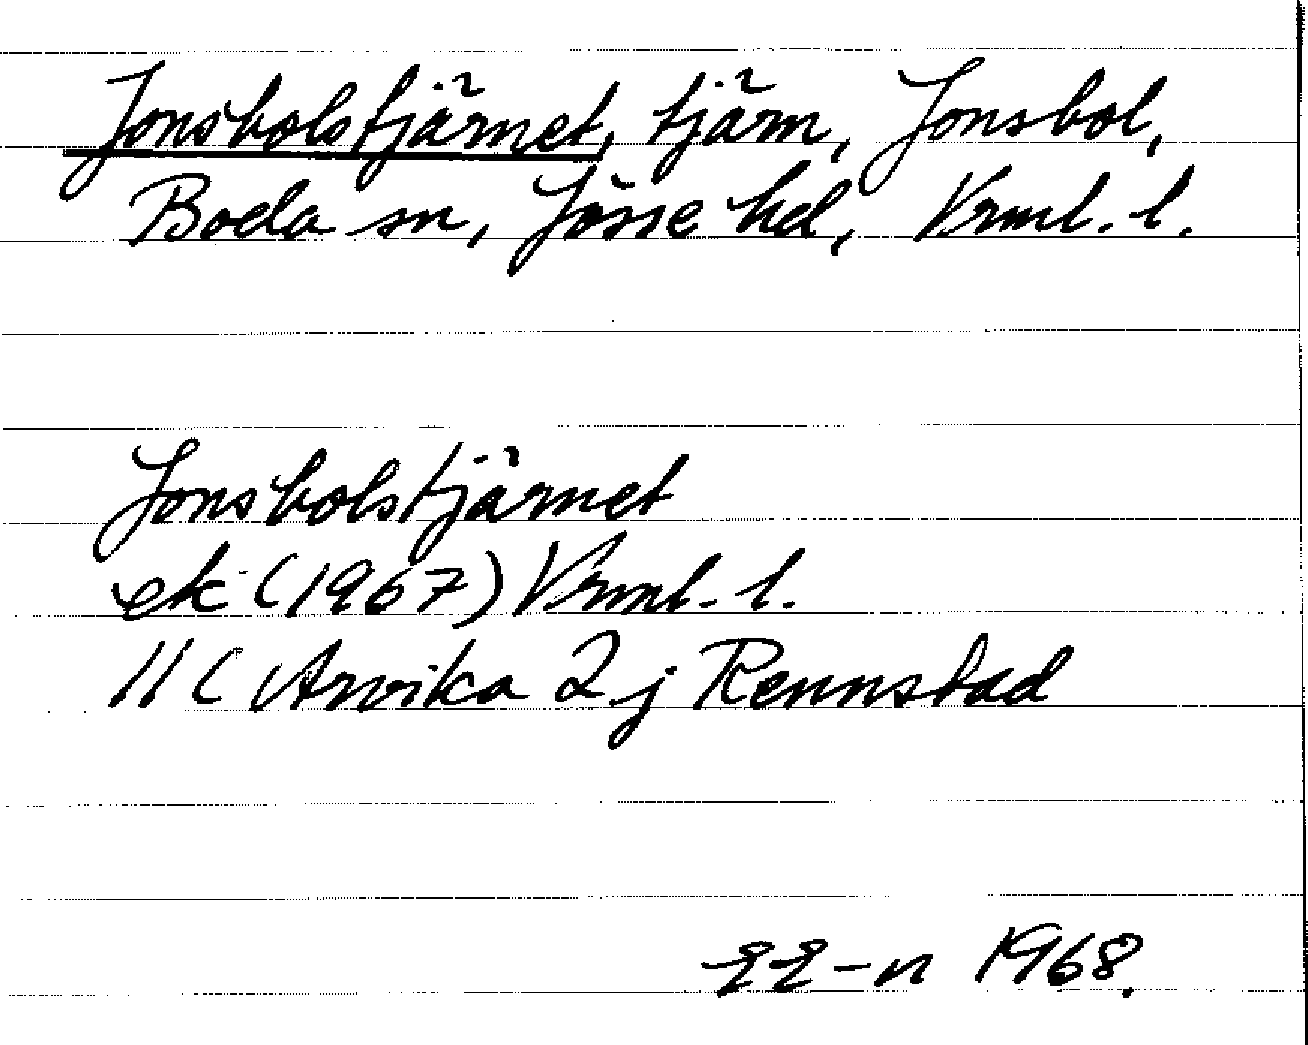 Jonsbolstjärnet, tjärn, Jonsbol,
Boda sn, Jösse hd, Vrml. l.
Jonsbolstjärnet
ek (1967) Vrml. l.
11C Arvika 2 j Rennstad
1968.